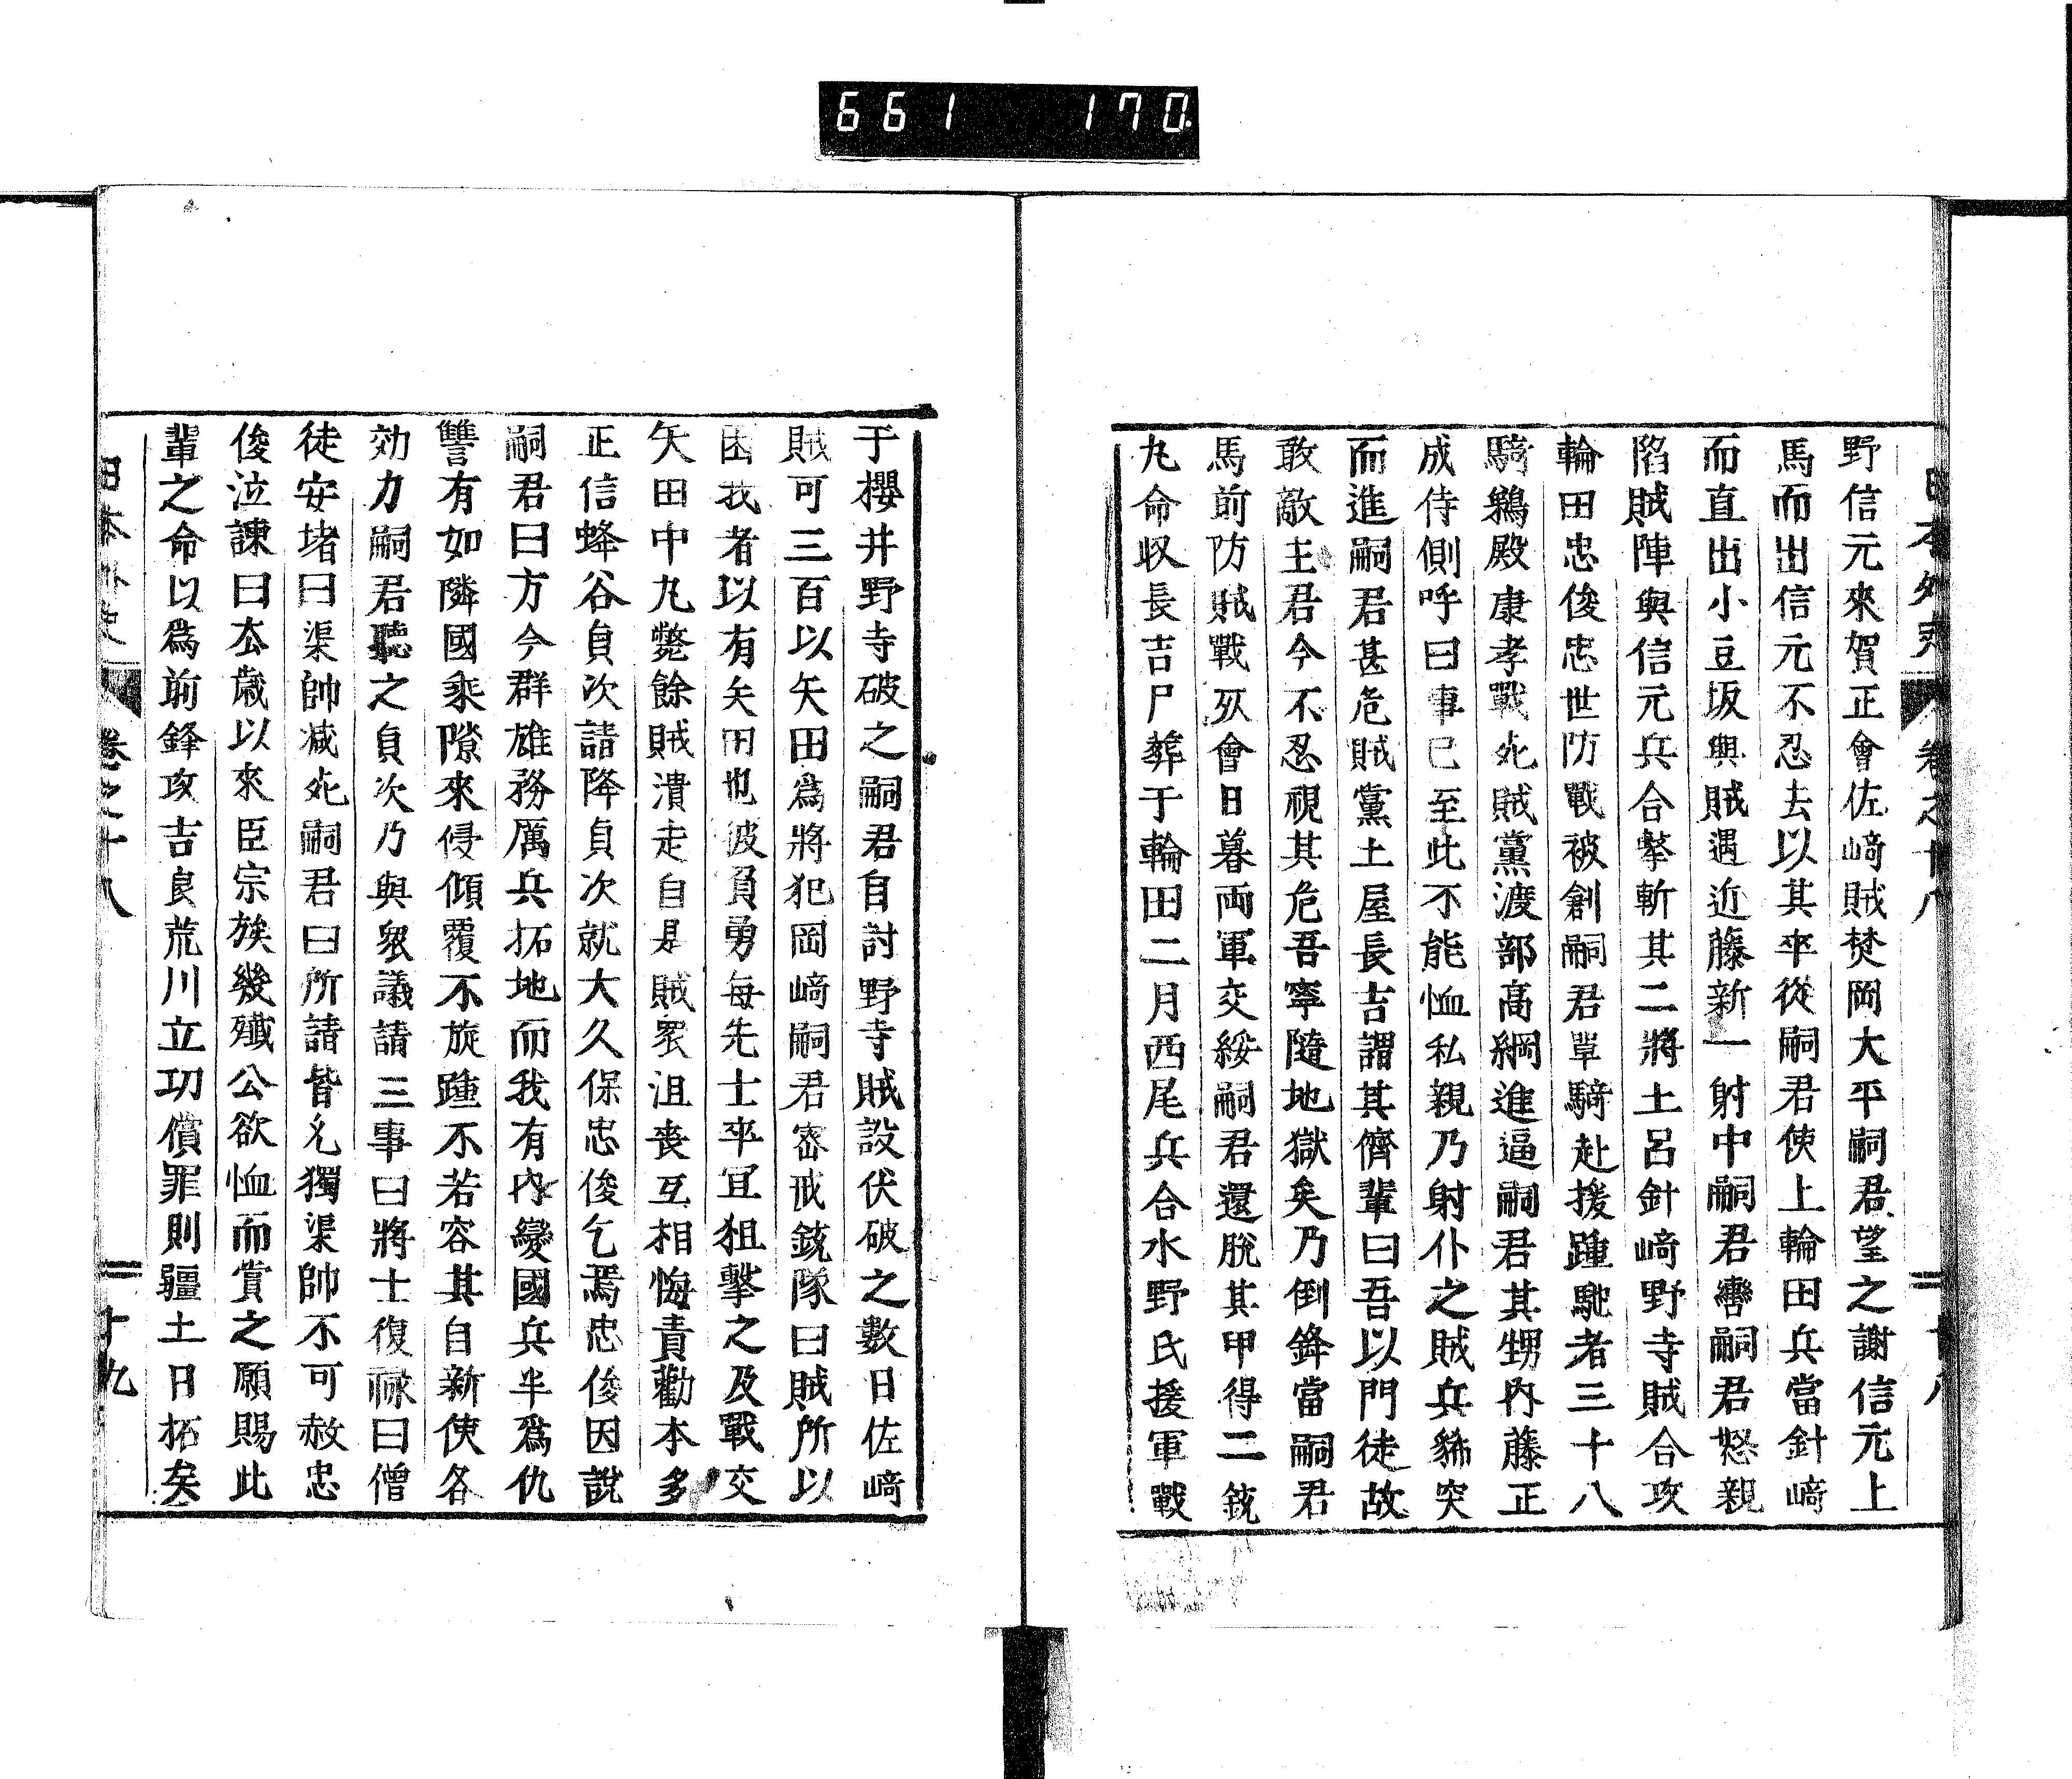 661 170
日本外史 卷之十八 二十八
野信元來賀正會佐﨑賊焚岡大平嗣君望之謝信元上
馬而出信元不忍去以其卒從嗣君使上輪田兵當針﨑
而直出小豆坂與賊遇近藤新一射中嗣君轡嗣君怒親
陷賊陣與信元兵合擊斬其二將土呂針﨑野寺賊合攻
輪田忠俊忠世防戰被創嗣君單騎赴援踵馳者三十八
騎鵜殿康孝戰死賊黨渡部高綱進逼嗣君其甥内藤正
成侍側呼曰事已至此不能恤私親乃射仆之賊兵豨突
而進嗣君甚危賊黨土屋長吉謂其儕輩曰吾以門徒故
敢敵主君今不忍視其危吾寧隨地獄矣乃倒鋒當嗣君
馬前防賊戰死會日暮両軍交綏嗣君還脫其甲得二銃
丸命收長吉尸葬于輪田二月西尾兵合水野氏援軍戰
于櫻井野寺破之嗣君自討野寺賊設伏破之數日佐﨑
賊可三百以矢田爲將犯岡﨑嗣君密戒銃隊曰賊所以
困我者以有矢田也彼負勇每先士卒冝狙擊之及戰交
矢田中丸斃餘賊潰走自是賊衆沮喪互相悔責勸本多
正信蜂谷貞次請降貞次就大久保忠俊乞焉忠俊因說
嗣君曰方今群雄務厲兵拓地而我有内變國兵半爲仇
讐有如隣國乘隙來侵傾覆不旋踵不若容其自新使各
効力嗣君聽之貞次乃與衆議請三事曰將士復祿曰僧
徒安堵曰渠帥减死嗣君曰所請皆允獨渠帥不可赦忠
俊泣諫曰去歲以來臣宗族幾殱公欲恤而賞之願賜此
輩之命以爲前鋒攻吉良荒川立功償罪則疆土日拓矣
日本外史 卷之十八 二十九